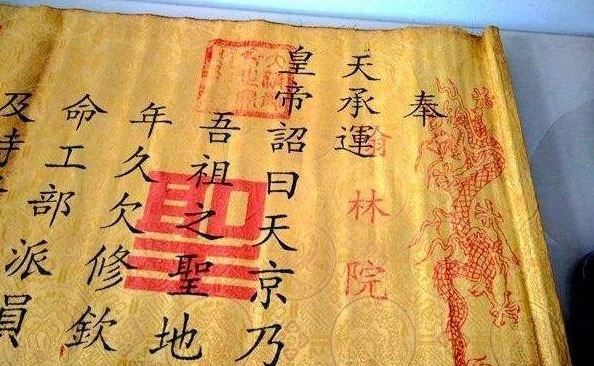 奉
翰林院
天承運
皇帝詔曰天京乃
吾祖之聖地
年久欠修欽
命工部派員
及